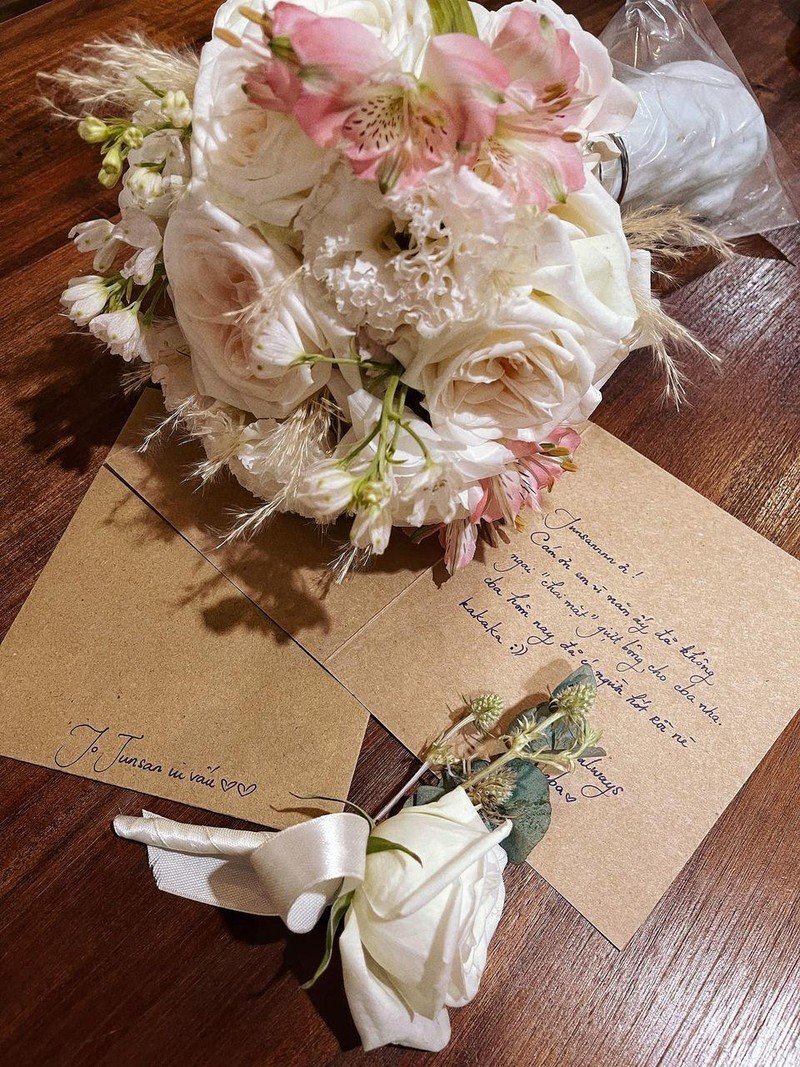 To Junsan iu vấu ♡♡
Junsannnn ơi!
Cám ơn em vì năm ấy đã không
ngại "chai mặt" giựt bông cho cba nha.
cba hôm nay đã có người hốt rồi nè
kakaka :))
always
cba♡